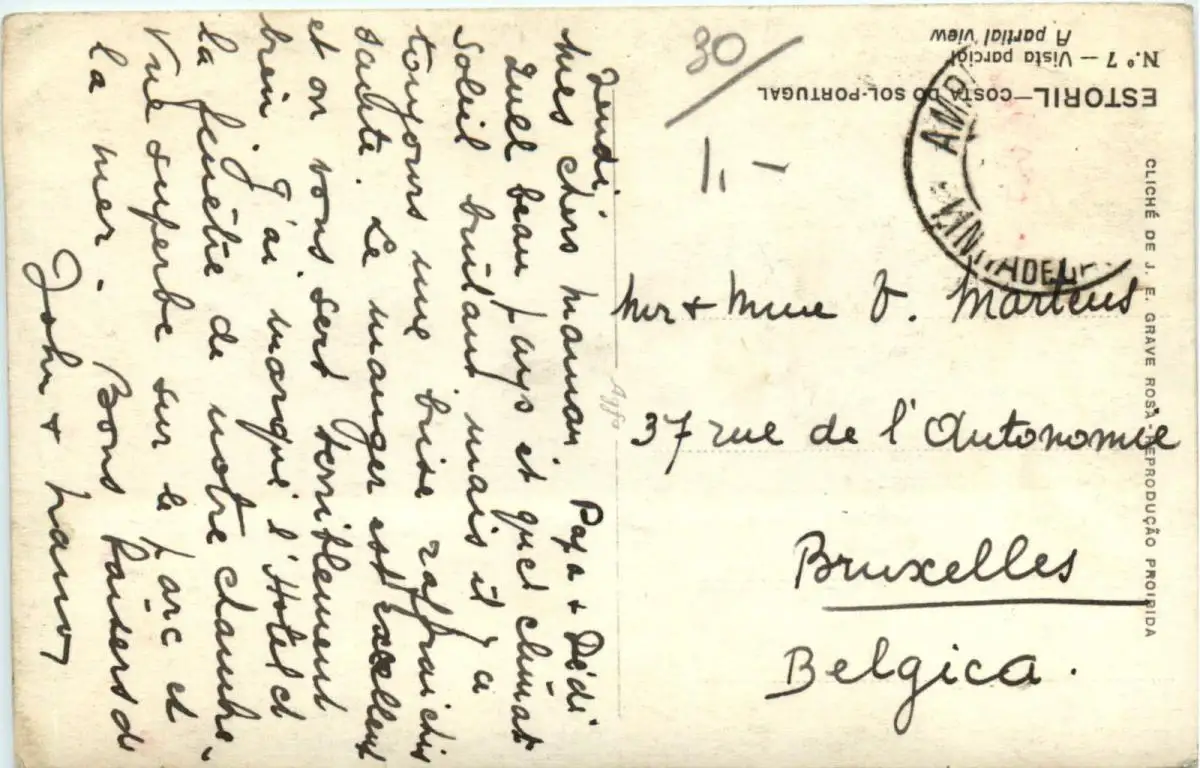 ESTORIL—COSTA DO SOL-PORTUGAL
N.º 7 — Vista parcial
A partial view
CLICHÉ DE J. E. GRAVE ROSA. REPRODUÇÃO PROIBIDA
30
1.-
Agfa
Jeudi,
Mes chers maman, Papa + Dédi
Quel beau pays et quel climat
Soleil brulant mais il y a
toujours une brise rafraichis
sante. Le manger est excellent
et on vous sert terriblement
bien J'ai marqué l'Hotel et
la fenêtre de notre chambre.
Vue superbe sur le parc et
la mer. Bons baisers de
John +
Mr + Mme V. Martens
37 rue de l'Autonomie
Bruxelles
Belgica.